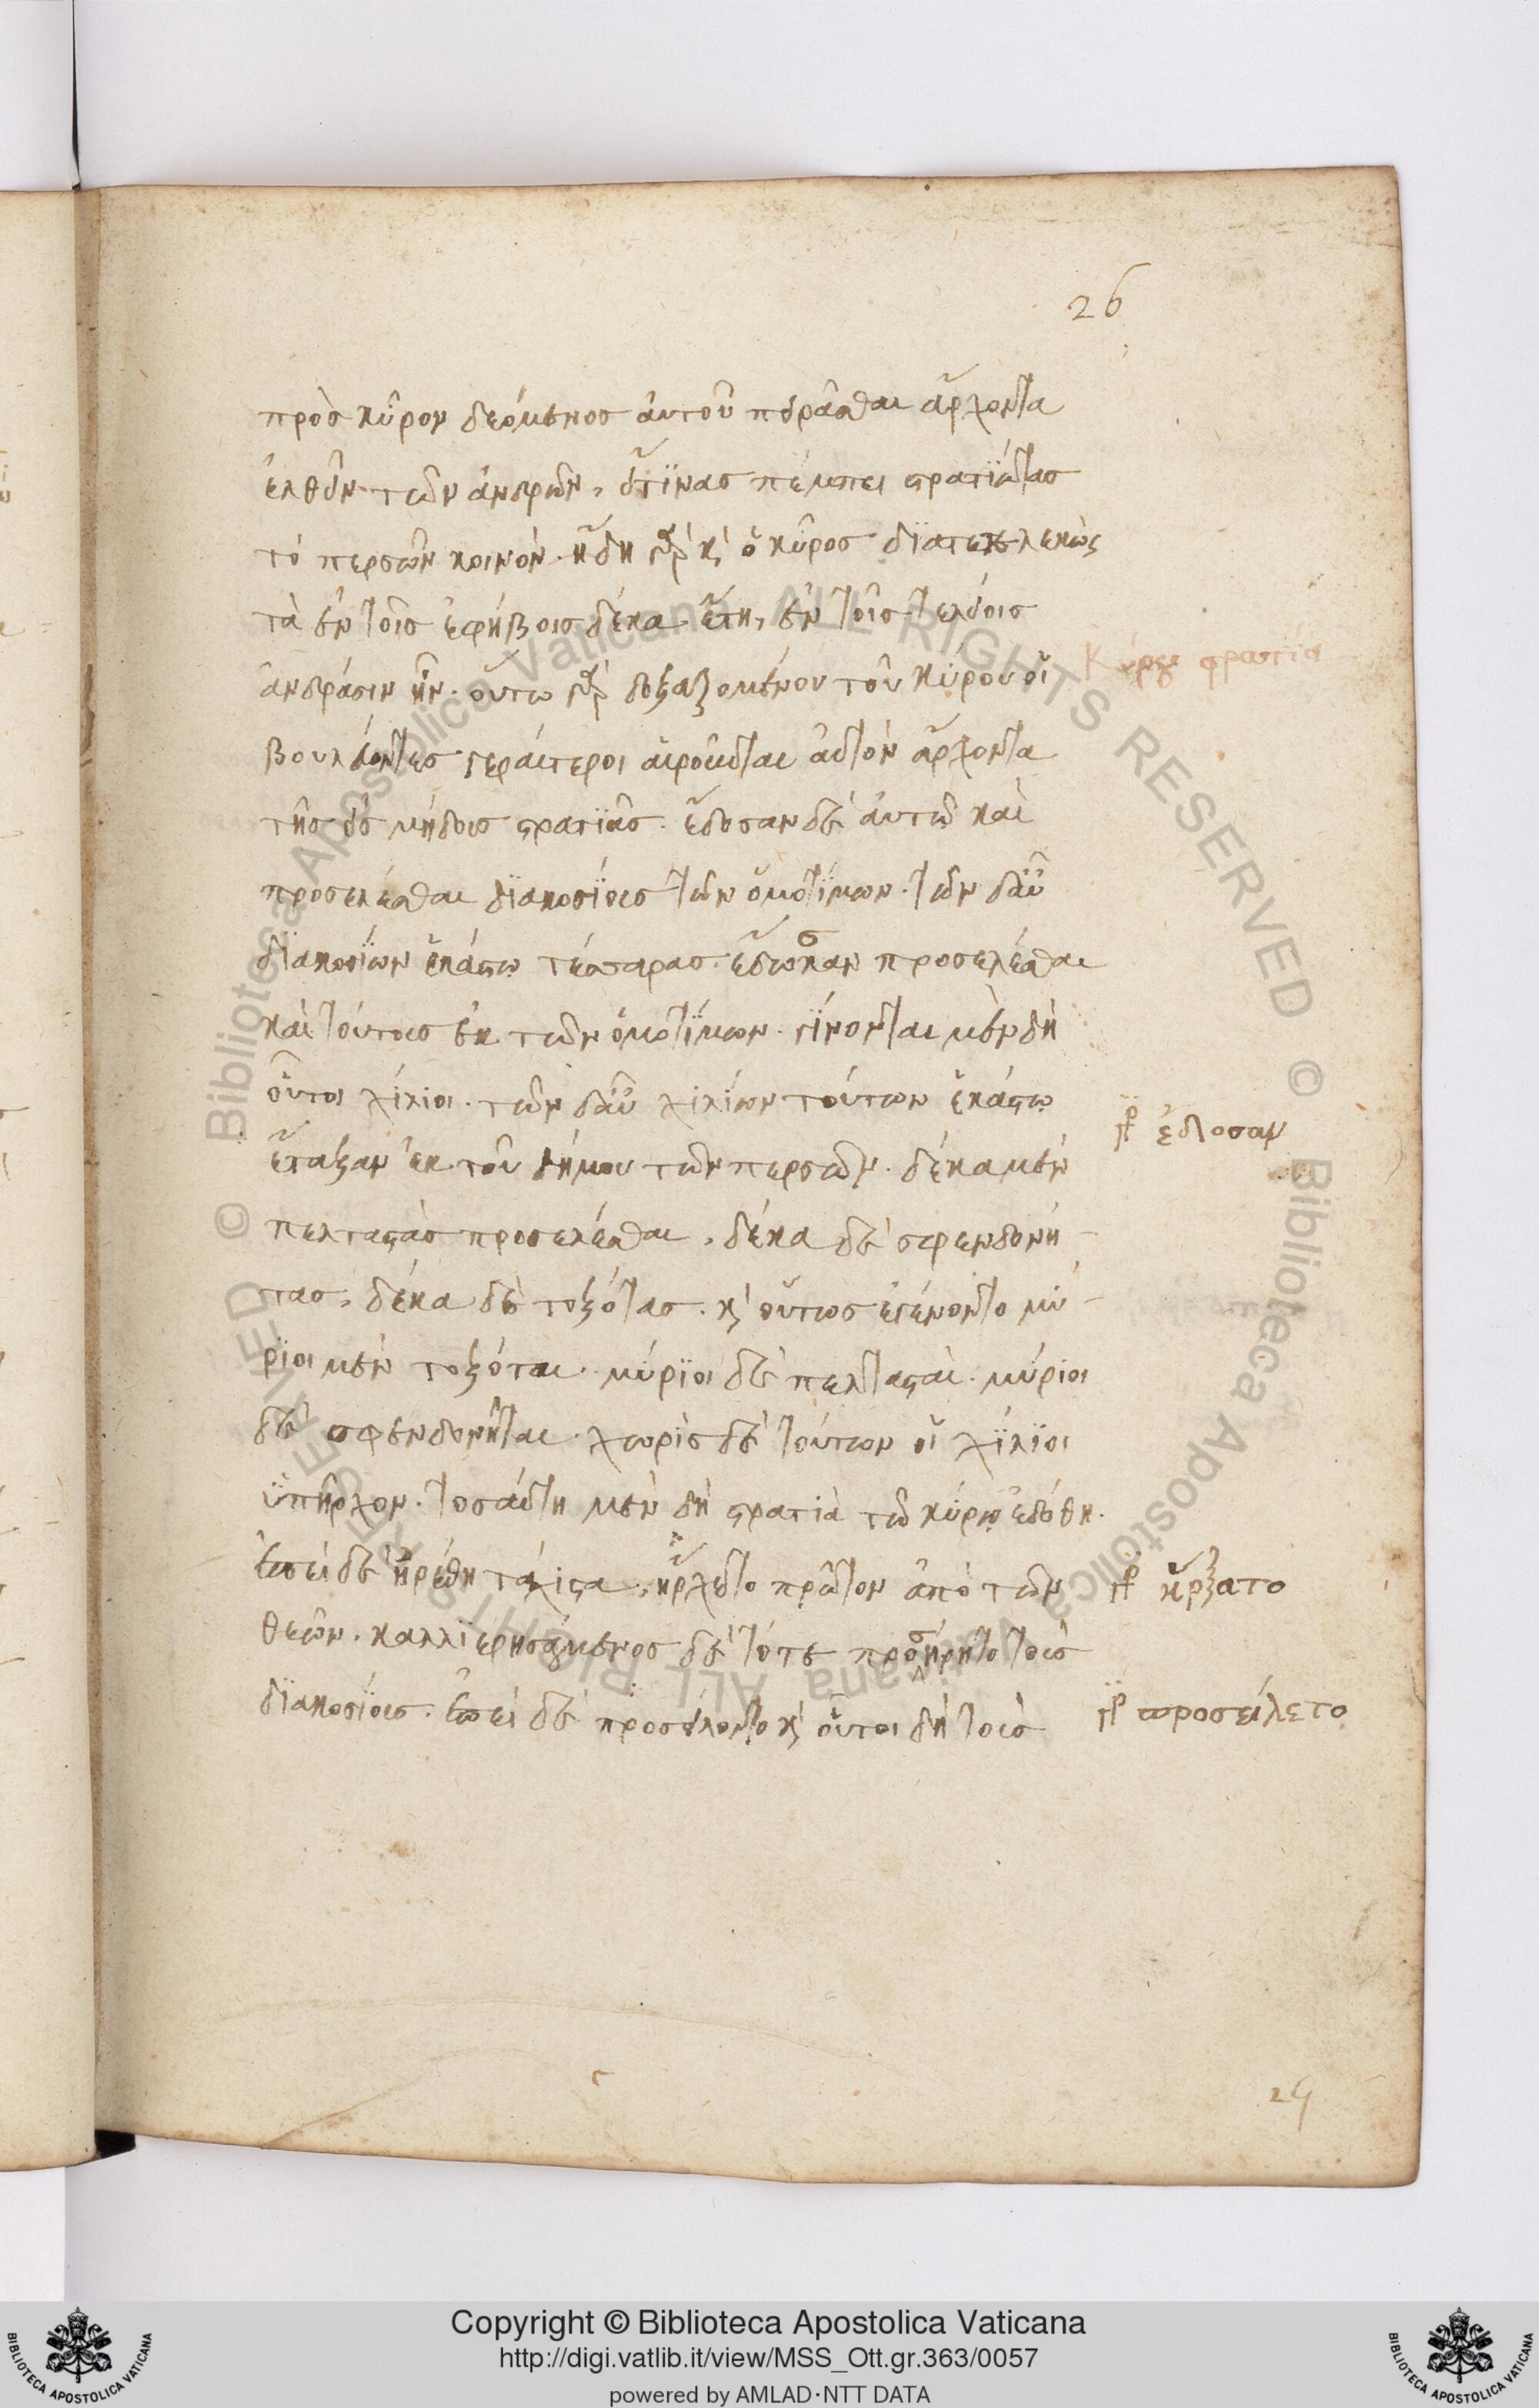 26
πρὸς κῦρον δεόμενος ἀυτοῦ πειρᾶσθαι ἄρχοντα
ἐλθεῖν τῶν ἀνδρῶν, οὕστινας πέμπει στρατιώτας
τὸ περσῶν κοινόν. ἤδη γὰρ κὶ ὁ κῦρος διατετελεκὼς
τὰ ἐν τοῖς ἐφήβοις δέκα ἔτη, ἐν τοῖς τελείοις
ἀνδράσιν ἦν. οὕτω γὰρ δοξαζομένου τοῦ κύρου οἱ
Κύρου στρατιά
βουλεύοντες γεραίτεροι αἱροῦνται αὐτὸν ἄρχοντα
τῆς εἰς μήδους στρατιᾶς. ἔδοσαν δὲ ἀυτῶ καὶ
προσελέσθαι διακοσίους τῶν ὁμοτίμων. τῶν δαῦ
διακοσίων ἑκάστω τέσσαρας ἔδωκαν προσελέσθαι
καὶ τούτους ἐκ τῶν ὁμοτίμων. γίνονται μὲν δὴ
οὗτοι χίλιοι. τῶν δαῦ χιλίων τούτων ἑκάστω
γρ ἔδοσαν
ἔταξαν ἐκ τοῦ δήμου τῶν περσῶν. δέκα μὲν
πελταστὰς προσελέσθαι, δέκα δὲ σφενδονή-
τας, δέκα δὲ τοξότας. κὶ οὕτως ἐγένοντο μύ-
ριοι μὲν τοξόται. μύριοι δὲ πελτασταὶ. μύριοι
δὲ σφενδονῆται. χωρὶς δὲ τούτων οἱ χίλιοι
ὑπῆρχον. τοσαύτη μὲν δὴ στρατιὰ τῶ κύρω ἐδόθη.
ἐπεὶ δὲ ἡρέθη τάχιστα, ἤρχετο πρῶτον ἀπὸ τῶν
γρ ἤρξατο
θεῶν. καλλιερησάμενος δὲ τότε προσήρητο τοὺς
διακοσίους. ἐπεὶ δὲ προσείλοντο κὶ οὗτοι δὴ τοὺς
γρ προσείλετο
24
Copyright © Biblioteca Apostolica Vaticana
http://digi.vatlib.it/view/MSS_Ott.gr.363/0057
powered by AMLAD·NTT DATA